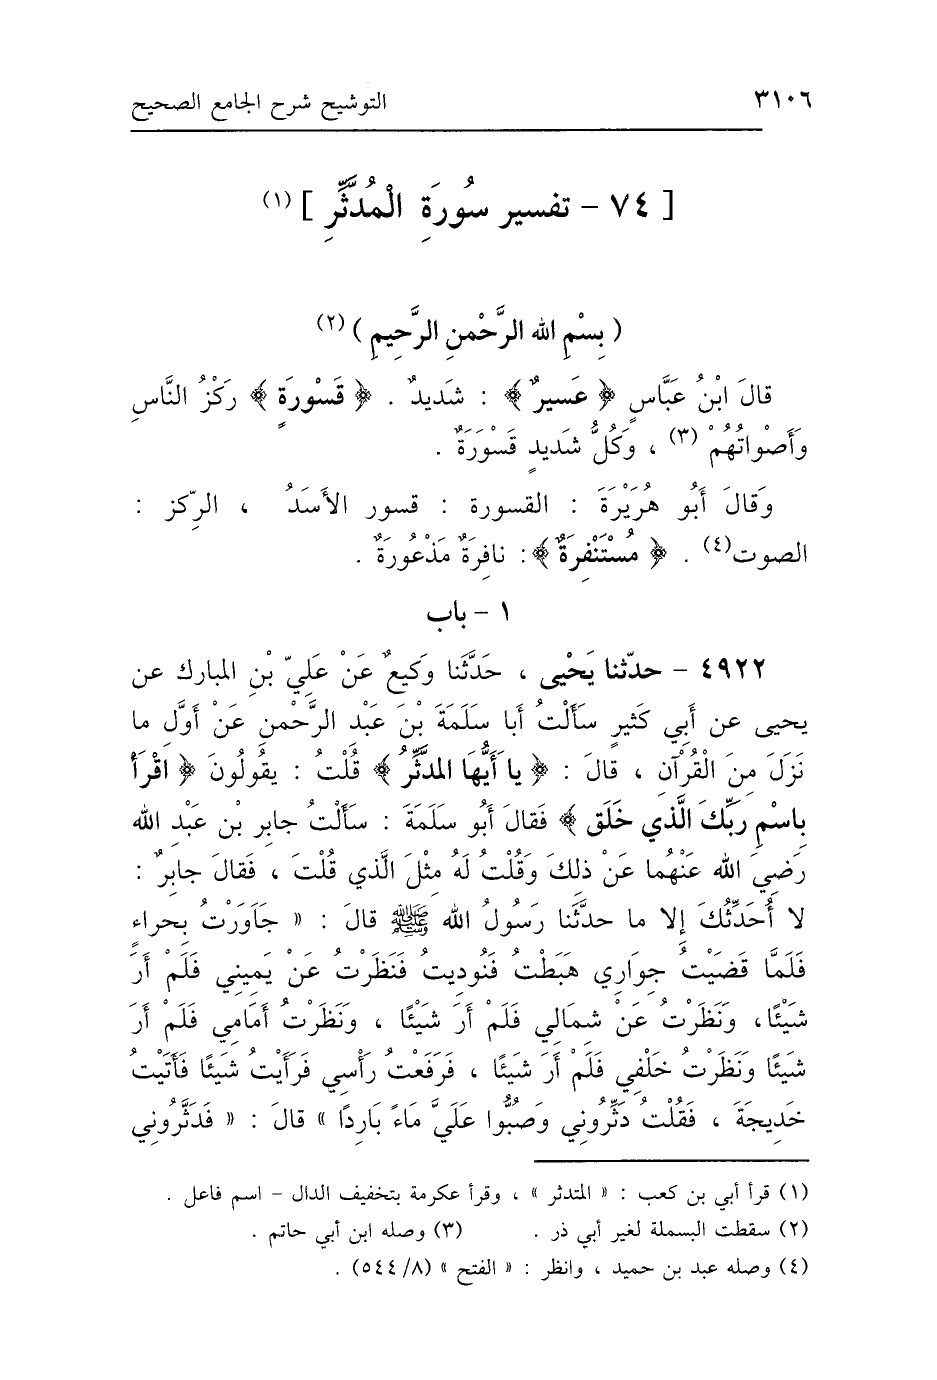 ٣١٠٦ التوشيح شرح الجامع الصحيح
[ ٧٤ - تفسير سُورَةِ الْمُدَّثِّرِ ] (١)
( بِسْمِ الله الرَّحْمنِ الرَّحِيمِ ) (٢)
قالَ ابْنُ عَبَّاسٍ ﴿ عَسيرٌ ﴾ : شَديدٌ . ﴿ قَسْورَةٍ ﴾ رَكْزُ النَّاسِ
وَأَصْواتُهُمْ (٣) ، وَكُلُّ شَديدٍ قَسْوَرَةٌ .
وَقالَ أَبُو هُرَيْرَةَ : القسورة : قسور الأَسَدُ ، الرِّكز :
الصوت (٤) . ﴿ مُسْتَنْفِرَةٌ ﴾ : نافِرَةٌ مَذْعُورَةٌ .
١ - باب
٤٩٢٢ - حدّثنا يَحْيى ، حَدَّثَنا وَكيعٌ عَنْ عَلِيّ بْنِ المبارك عن
يحيى عن أَبي كَثيرٍ سَأَلْتُ أَبا سَلَمَةَ بْنَ عَبْد الرَّحْمنِ عَنْ أَوَّلِ ما
نَزَلَ مِنَ الْقُرْآنِ ، قالَ : ﴿ يا أَيُّهَا المدَّثِّرُ ﴾ قُلْتُ : يقُولُونَ ﴿ اقْرَأْ
بِاسْمِ رَبِّكَ الَّذي خَلَقَ ﴾ فَقالَ أَبُو سَلَمَةَ : سَأَلْتُ جابِر بْن عَبْدِ الله
رَضِيَ الله عَنْهُما عَنْ ذلكَ وَقُلْتُ لَهُ مثْلَ الَّذي قُلْتَ ، فَقالَ جابِرٌ :
لا أُحَدِّثُكَ إِلا ما حدَّثَنا رَسُولُ الله ﷺ قالَ : « جَاوَرْتُ بِحراءٍ
فَلَمَّا قَضَيْتُ جِوَارِي هَبَطْتُ فَنُودِيتُ فَنَظَرْتُ عَنْ يَمِيني فَلَمْ أَرَ
شَيْئًا، وَنَظَرْتُ عَنْ شمالِي فَلَمْ أَرَ شَيْئًا ، وَنَظَرْتُ أَمَامِي فَلَمْ أَرَ
شيئًا وَنَظَرْتُ خَلْفِي فَلَمْ أَرَ شَيئًا ، فَرَفَعْتُ رَأْسي فَرَأَيْتُ شَيئًا فَأَتَيْتُ
خَدِيجَةَ ، فَقُلْتُ دَثِّرُوني وَصُبُّوا عَلَيَّ مَاءً بَارِدًا » قالَ : « فَدَثَّرُوني
(١) قرأ أبي بن كعب : « المتدثر » ، وقرأ عكرمة بتخفيف الدال - اسم فاعل .
(٢) سقطت البسملة لغير أبي ذر . (٣) وصله ابن أبي حاتم .
(٤) وصله عبد بن حميد ، وانظر : « الفتح » (٨/ ٥٤٤) .